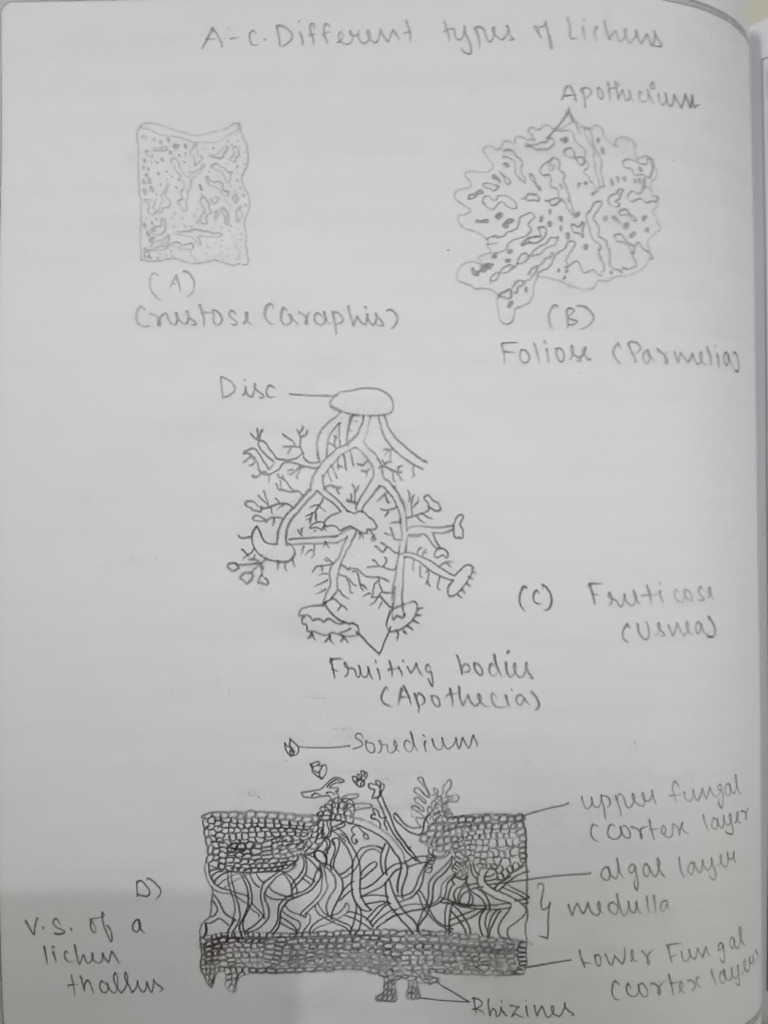 A-C. Different types of Lichens
Apothecium
(A)
Crustose (Graphis)
(B)
Foliose (Parmelia)
Disc
(C) Fruticose
(Usnea)
Fruiting bodies
(Apothecia)
Soredium
upper fungal
(cortex layer
algal layer
medulla
D)
V.S. of a
lichen
thallus
Lower Fungal
(cortex layer)
Rhizines